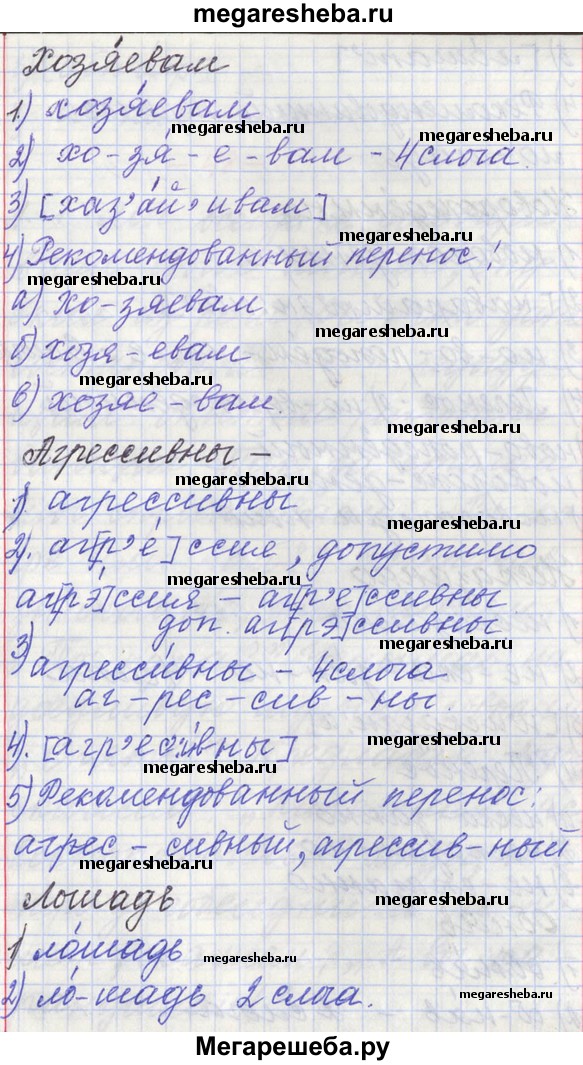 megaresheba.ru
хозя́евам
1) хозя́евам
megaresheba.ru
megaresheba.ru
2) хо-зя́-е-вам - 4 слога.
3) [хаз'а́й'ивам]
megaresheba.ru
4) Рекомендованный перенос:
megaresheba.ru
а) хо-зяевам
megaresheba.ru
б) хозя-евам
megaresheba.ru
в) хозяе-вам.
megaresheba.ru
Агрессивны -
megaresheba.ru
1) агрессивны
megaresheba.ru
2). аг[р'е́]ссия, допустимо
megaresheba.ru
аг[рэ́]ссия - аг[р'е]ссивны
доп. аг[рэ]ссивны
megaresheba.ru
3) агресси́вны - 4 слога
аг-рес-сив-ны.
megaresheba.ru
4). [агр'ес:и́вны]
megaresheba.ru
5) Рекомендованный перенос:
агрес-сивный, агрессив-ный
megaresheba.ru
Лошадь
megaresheba.ru
1) ло́шадь
megaresheba.ru
2) ло́-шадь 2 слога.
megaresheba.ru
Мегарешеба.ру